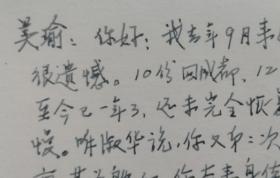 美瑜：你好：我去年9月事
很遗憾。10份回成都，12
至今已一年3，还未完全恢复
慢。听淑华说，你又第二次